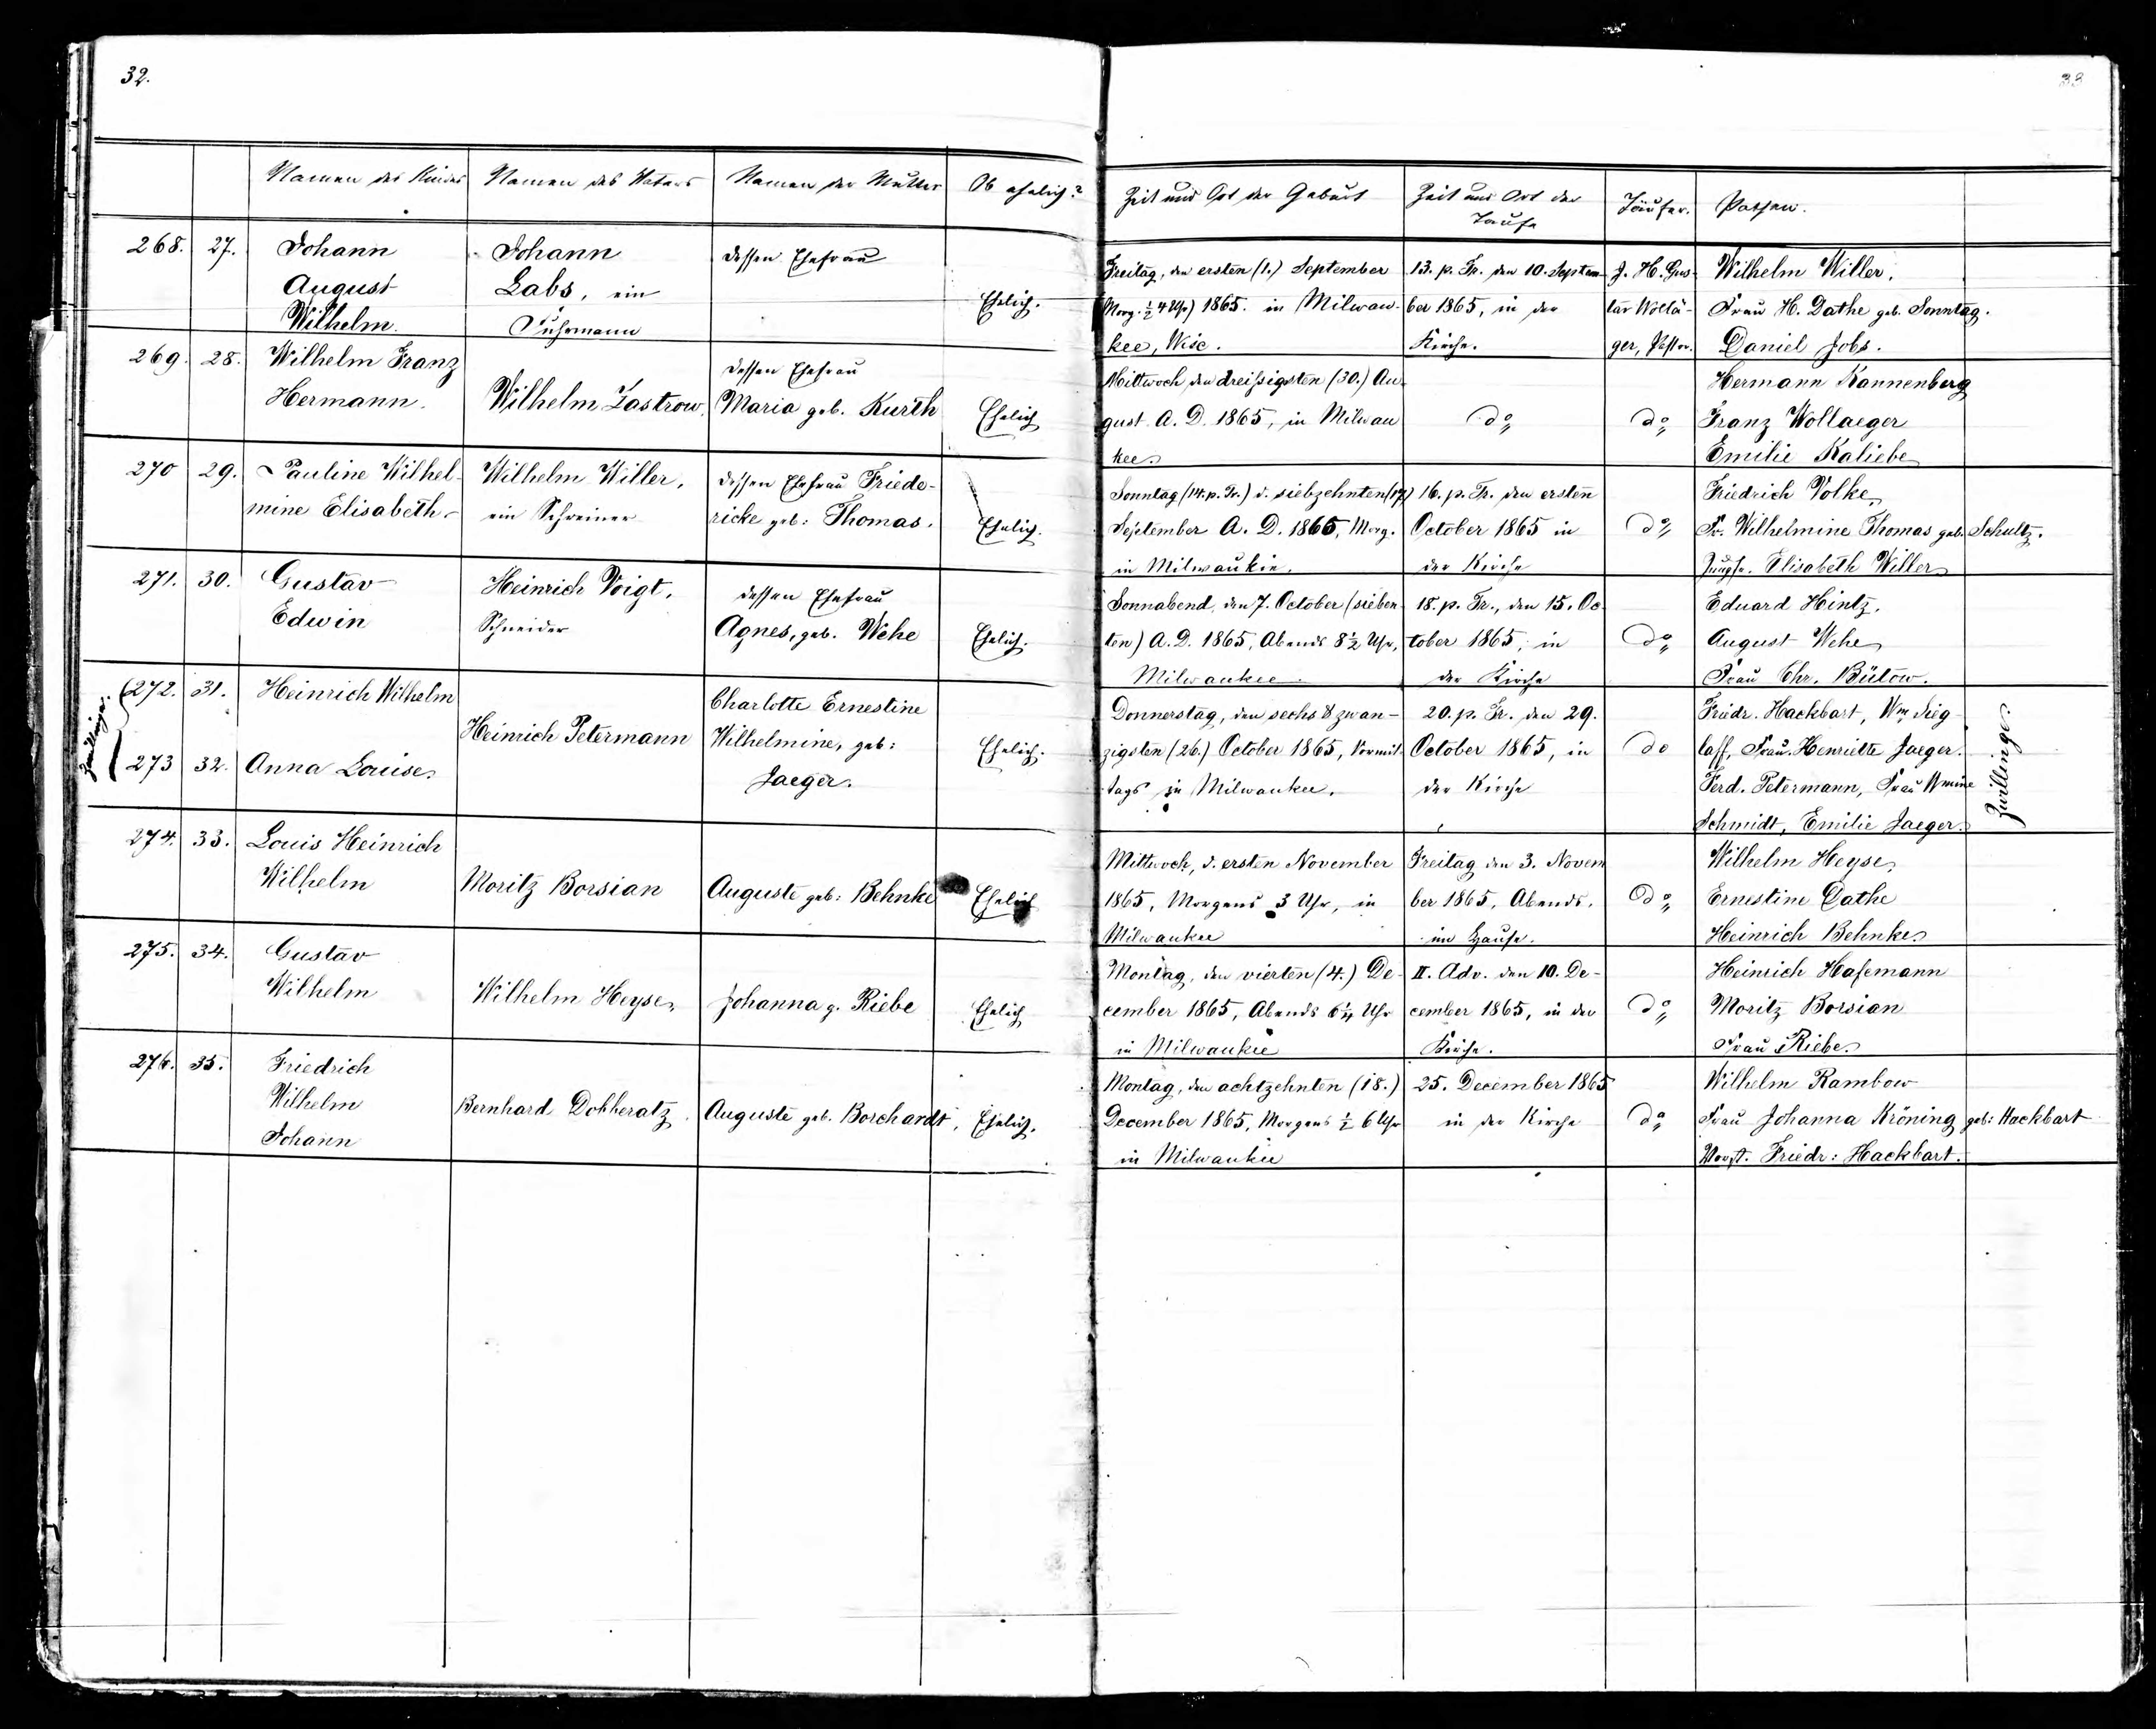 32.
33
Namen des Kindes Namen des Vaters Namen der Mutter Ob ehelich? Zeit und Ort der Geburt Zeit und Ort der Taufe Täufer. Pathen.
268. 27. Johann Johann dessen Ehefrau Freitag, den ersten (1.) September 13. p. Tr. den 10. Septem- J. H. Gus- Wilhelm Willer.
August Labs, ein Ehelich. Morg. ½ 4 Uhr) 1865. in Milwau- ber 1865, in der tav Wollä- Frau H. Dathe geb. Sonntag.
Wilhelm. Fuhrmann kee, Wisc. Kirche. ger, Pastor. Daniel Jobs.
269. 28. Wilhelm Franz dessen Ehefrau Mittwoch, den dreißigsten (30.) Au- Hermann Kannenberg
Hermann. Wilhelm Zastrow. Maria geb. Kurth Ehelich gust A. D. 1865, in Milwau do do Franz Wollaeger
kee. Emilie Kaliebe
270 29. Pauline Wilhel- Wilhelm Willer, dessen Ehefrau Friede- Sonntag (14. p. Tr.) d. siebzehnten (17.) 16. p. Tr. den ersten Friedrich Volke,
mine Elisabeth. ein Schreiner ricke geb: Thomas. Ehelich. September A. D. 1865, Morg. October 1865 in do Fr. Wilhelmine Thomas geb. Schultz.
in Milwaukie. der Kirche Jungfr. Elisabeth Willer
271. 30. Gustav Heinrich Voigt, dessen Ehefrau Sonnabend, den 7. October (sieben- 18. p. Tr., den 15. Oc- Eduard Hintz,
Edwin Schneider Agnes, geb. Wehe Ehelich. ten) A. D. 1865, Abends 8½ Uhr, tober 1865, in do August Wehe
Milwaukee der Kirche Frau Chr. Bülow.
Zwillinge. 272. 31. Heinrich Wilhelm Charlotte Ernestine Donnerstag, den sechs & zwan- 20. p. Tr. den 29. Friedr. Hackbart, Wm. Sieg-
Heinrich Petermann Wilhelmine, geb: Ehelich. zigsten (26.) October 1865, Vormit- October 1865, in do laff, Frau Henriette Jaeger.
273 32. Anna Louise. Jaeger. tags in Milwaukee. der Kirche Ferd. Petermann, Frau Wmine
Schmidt, Emilie Jaeger.
Zwillinge
274. 33. Louis Heinrich Mittwoch, d. ersten November Freitag den 3. Novem Wilhelm Heyse,
Wilhelm Moritz Borsian Auguste geb: Behnke Ehelich 1865, Morgens 3 Uhr, in ber 1865, Abends, do Ernestine Dathe
Milwaukee im Hause. Heinrich Behnke
275. 34. Gustav Montag, den vierten (4.) De- II. Adv. den 10. De- Heinrich Hasemann
Wilhelm Wilhelm Heyse, Johanna g. Riebe Ehelich cember 1865, Abends 6¼ Uhr cember 1865, in der do Moritz Borsian
in Milwaukee Kirche. Frau Riebe
276. 35. Friedrich Montag, den achtzehnten (18.) 25. December 1865 Wilhelm Rambow
Wilhelm Bernhard Dobberatz. Auguste geb. Borchardt, Ehelich. December 1865, Morgens ½ 6 Uhr in der Kirche do Frau Johanna Kröning geb: Hackbart
Johann in Milwaukee Friedr: Hackbart.